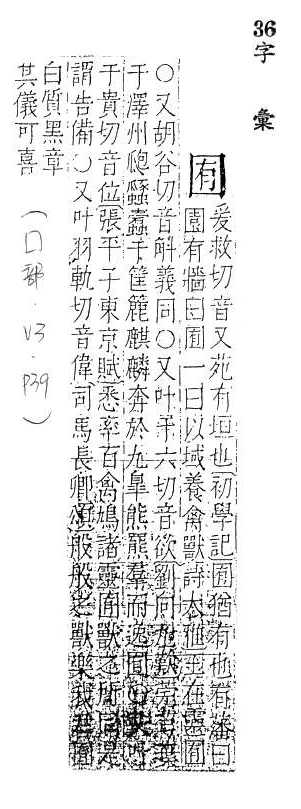 36字 彙
囿
爰救切音又苑有垣也初學記囿猶有也有藩曰
園有牆曰囿一曰以域養禽獸詩大雅王在靈囿
〇又胡谷切音斛義同〇又叶于六切音欲劉向九歎
于澤州瓟蠡蠹于筐簏麒麟奔於九皐熊羆羣而逸囿〇
于貴切音位張平子東京賦悉率百禽鳩諸靈囿獸之所同是
謂告備〇又叶羽軌切音偉司馬長卿頌般般之獸樂我君囿
白質黑章
其儀可喜
(口部·V3·P39)